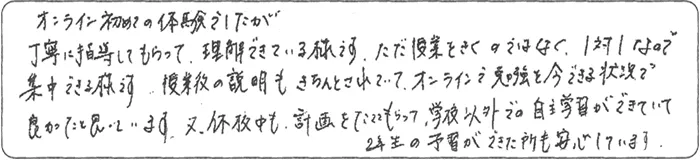 オンライン初めての体験でしたが
丁寧に指導してもらって、理解できている様です。ただ授業をきくのではなく、1対1なので
集中できる様です。授業後の説明もきちんとされていて、オンラインで勉強を今できる状況で
良かったと思います。又、休校中も、計画をたててもらって、学校以外での自主学習ができていて
2年生の予習ができた所も安心しています。